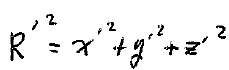 R'² = x'² + y'² + z'²